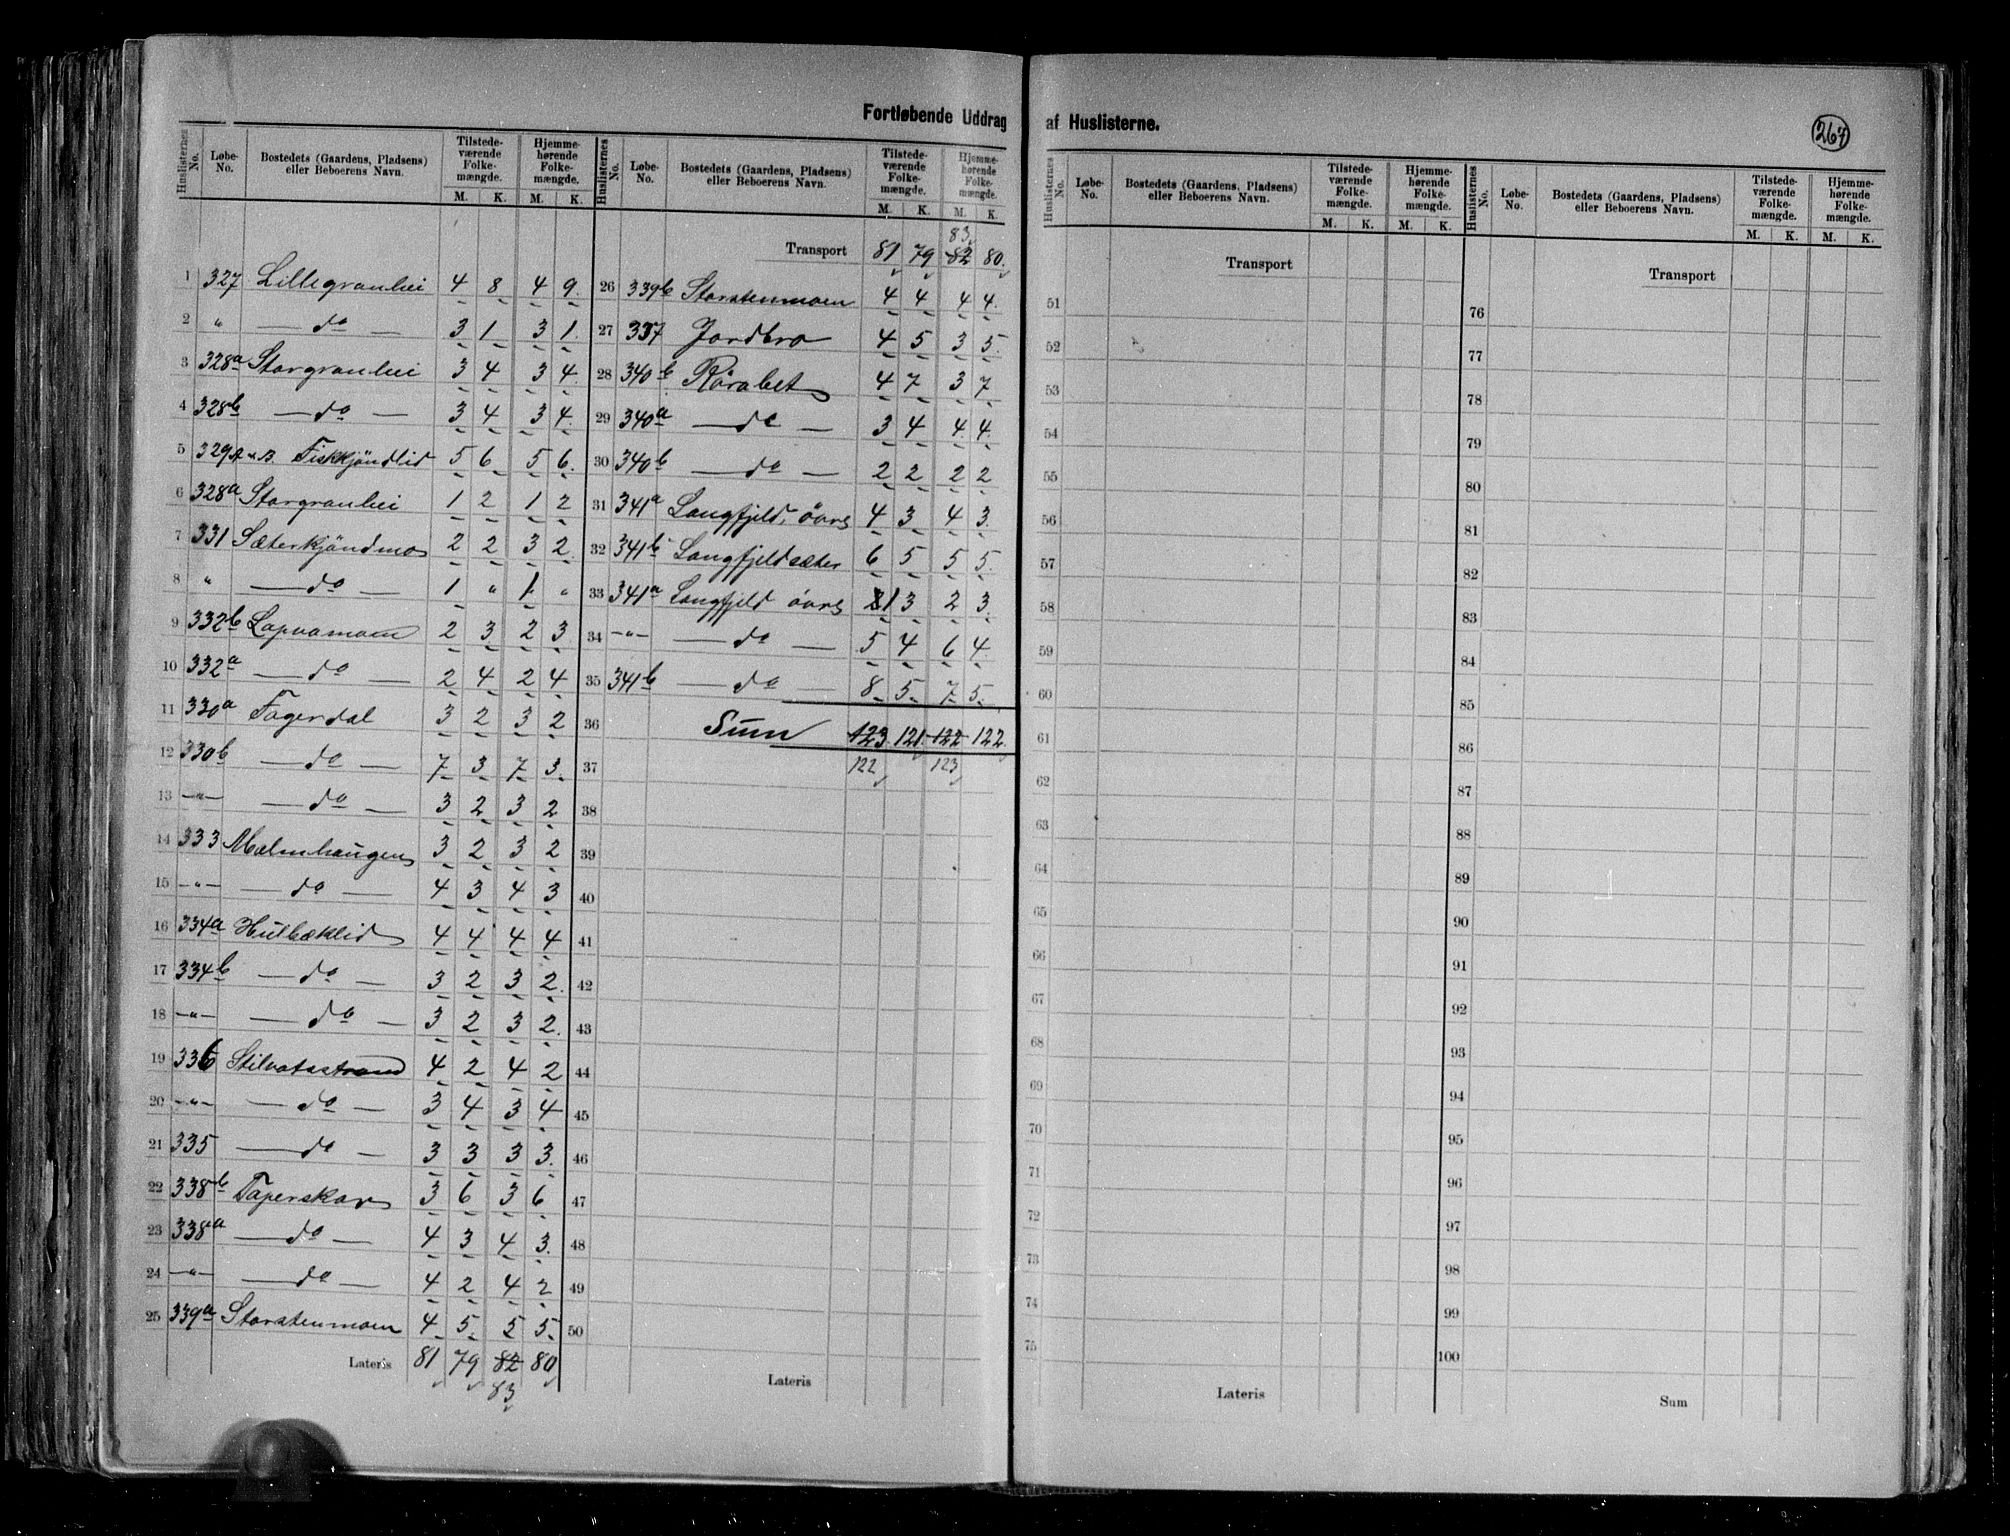 Fortløbende Uddrag af Huslisterne.
267
Huslisternes No. | Løbe-No. | Bostedets (Gaardens, Pladsens) eller Beboerens Navn. | Tilstedeværende Folkemængde. M. K. | Hjemmehørende Folkemængde. M. K.
1 327 Lillegranhei 4 8 4 9.
2 " — do — 3 1 3 1.
3 328a Storgranhei 3 4 3 4.
4 328b — do — 3 4 3 4.
5 329A + B. Fiskkjöndlid 5 6 5 6.
6 328a Storgranhei 1 2 1 2
7 331 Sæterkjöndmo 2 2 3 2.
8 " — do — 1 " 1 "
9 332b Lapvamoen 2 3 2 3
10 332a — do — 2 4 2 4
11 330a Fagerdal 3 2 3 2
12 330b — do — 7 3 7 3.
13 —"— — do — 3 2 3 2
14 333 Malmhaugen 3 2 3 2
15 —"— — do — 4 3 4 3
16 334a Hulbæklid 4 4 4 4
17 334b — do — 3 2 3 2.
18 —"— — do — 3 2 3 2.
19 336 Stilvatsstrand 4 2 4 2
20 —"— — do — 3 4 3 4
21 335 — do — 3 3 3 3.
22 338b Tåperskar 3 6 3 6
23 338a — do — 4 3 4 3.
24 —"— — do — 4 2 4 2
25 339a Storstenmoen 4 5 5 5
Lateris 81 79 82 80
83
Huslisternes No. | Løbe-No. | Bostedets (Gaardens, Pladsens) eller Beboerens Navn. | Tilstedeværende Folkemængde. M. K. | Hjemmehørende Folkemængde. M. K.
83
Transport 81 79 82 80.
26 339b Storstenmoen 4 4 4 4.
27 337 Jordbro 4 5 3 5.
28 340b Rörabet 4 7 3 7
29 340a — do — 3 4 4 4.
30 340b — do — 2 2 2 2
31 341a Langfjeld, övre 4 3 4 3.
32 341b Langfjeldsæter 6 5 5 5.
33 341a Langfjeld övre 1 3 2 3.
34 —"— — do — 5 4 6 4.
35 341b — do — 8 5 7 5.
36 Sum 123 121 122 122.
37 122 123
38
39
40
41
42
43
44
45
46
47
48
49
50
Lateris
Huslisternes No. | Løbe-No. | Bostedets (Gaardens, Pladsens) eller Beboerens Navn. | Tilstedeværende Folkemængde. M. K. | Hjemmehørende Folkemængde. M. K.
Transport
51
52
53
54
55
56
57
58
59
60
61
62
63
64
65
66
67
68
69
70
71
72
73
74
75
Lateris
Huslisternes No. | Løbe-No. | Bostedets (Gaardens, Pladsens) eller Beboerens Navn. | Tilstedeværende Folkemængde. M. K. | Hjemmehørende Folkemængde. M. K.
Transport
76
77
78
79
80
81
82
83
84
85
86
87
88
89
90
91
92
93
94
95
96
97
98
99
100
Sum